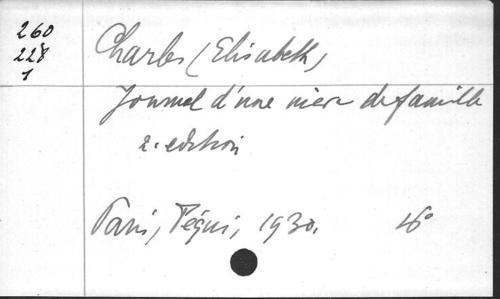 260
228
1
Charles (Elisabeth)
Journal d'une mère de famille
2. edition
Paris, Téqui, 1930. 16°